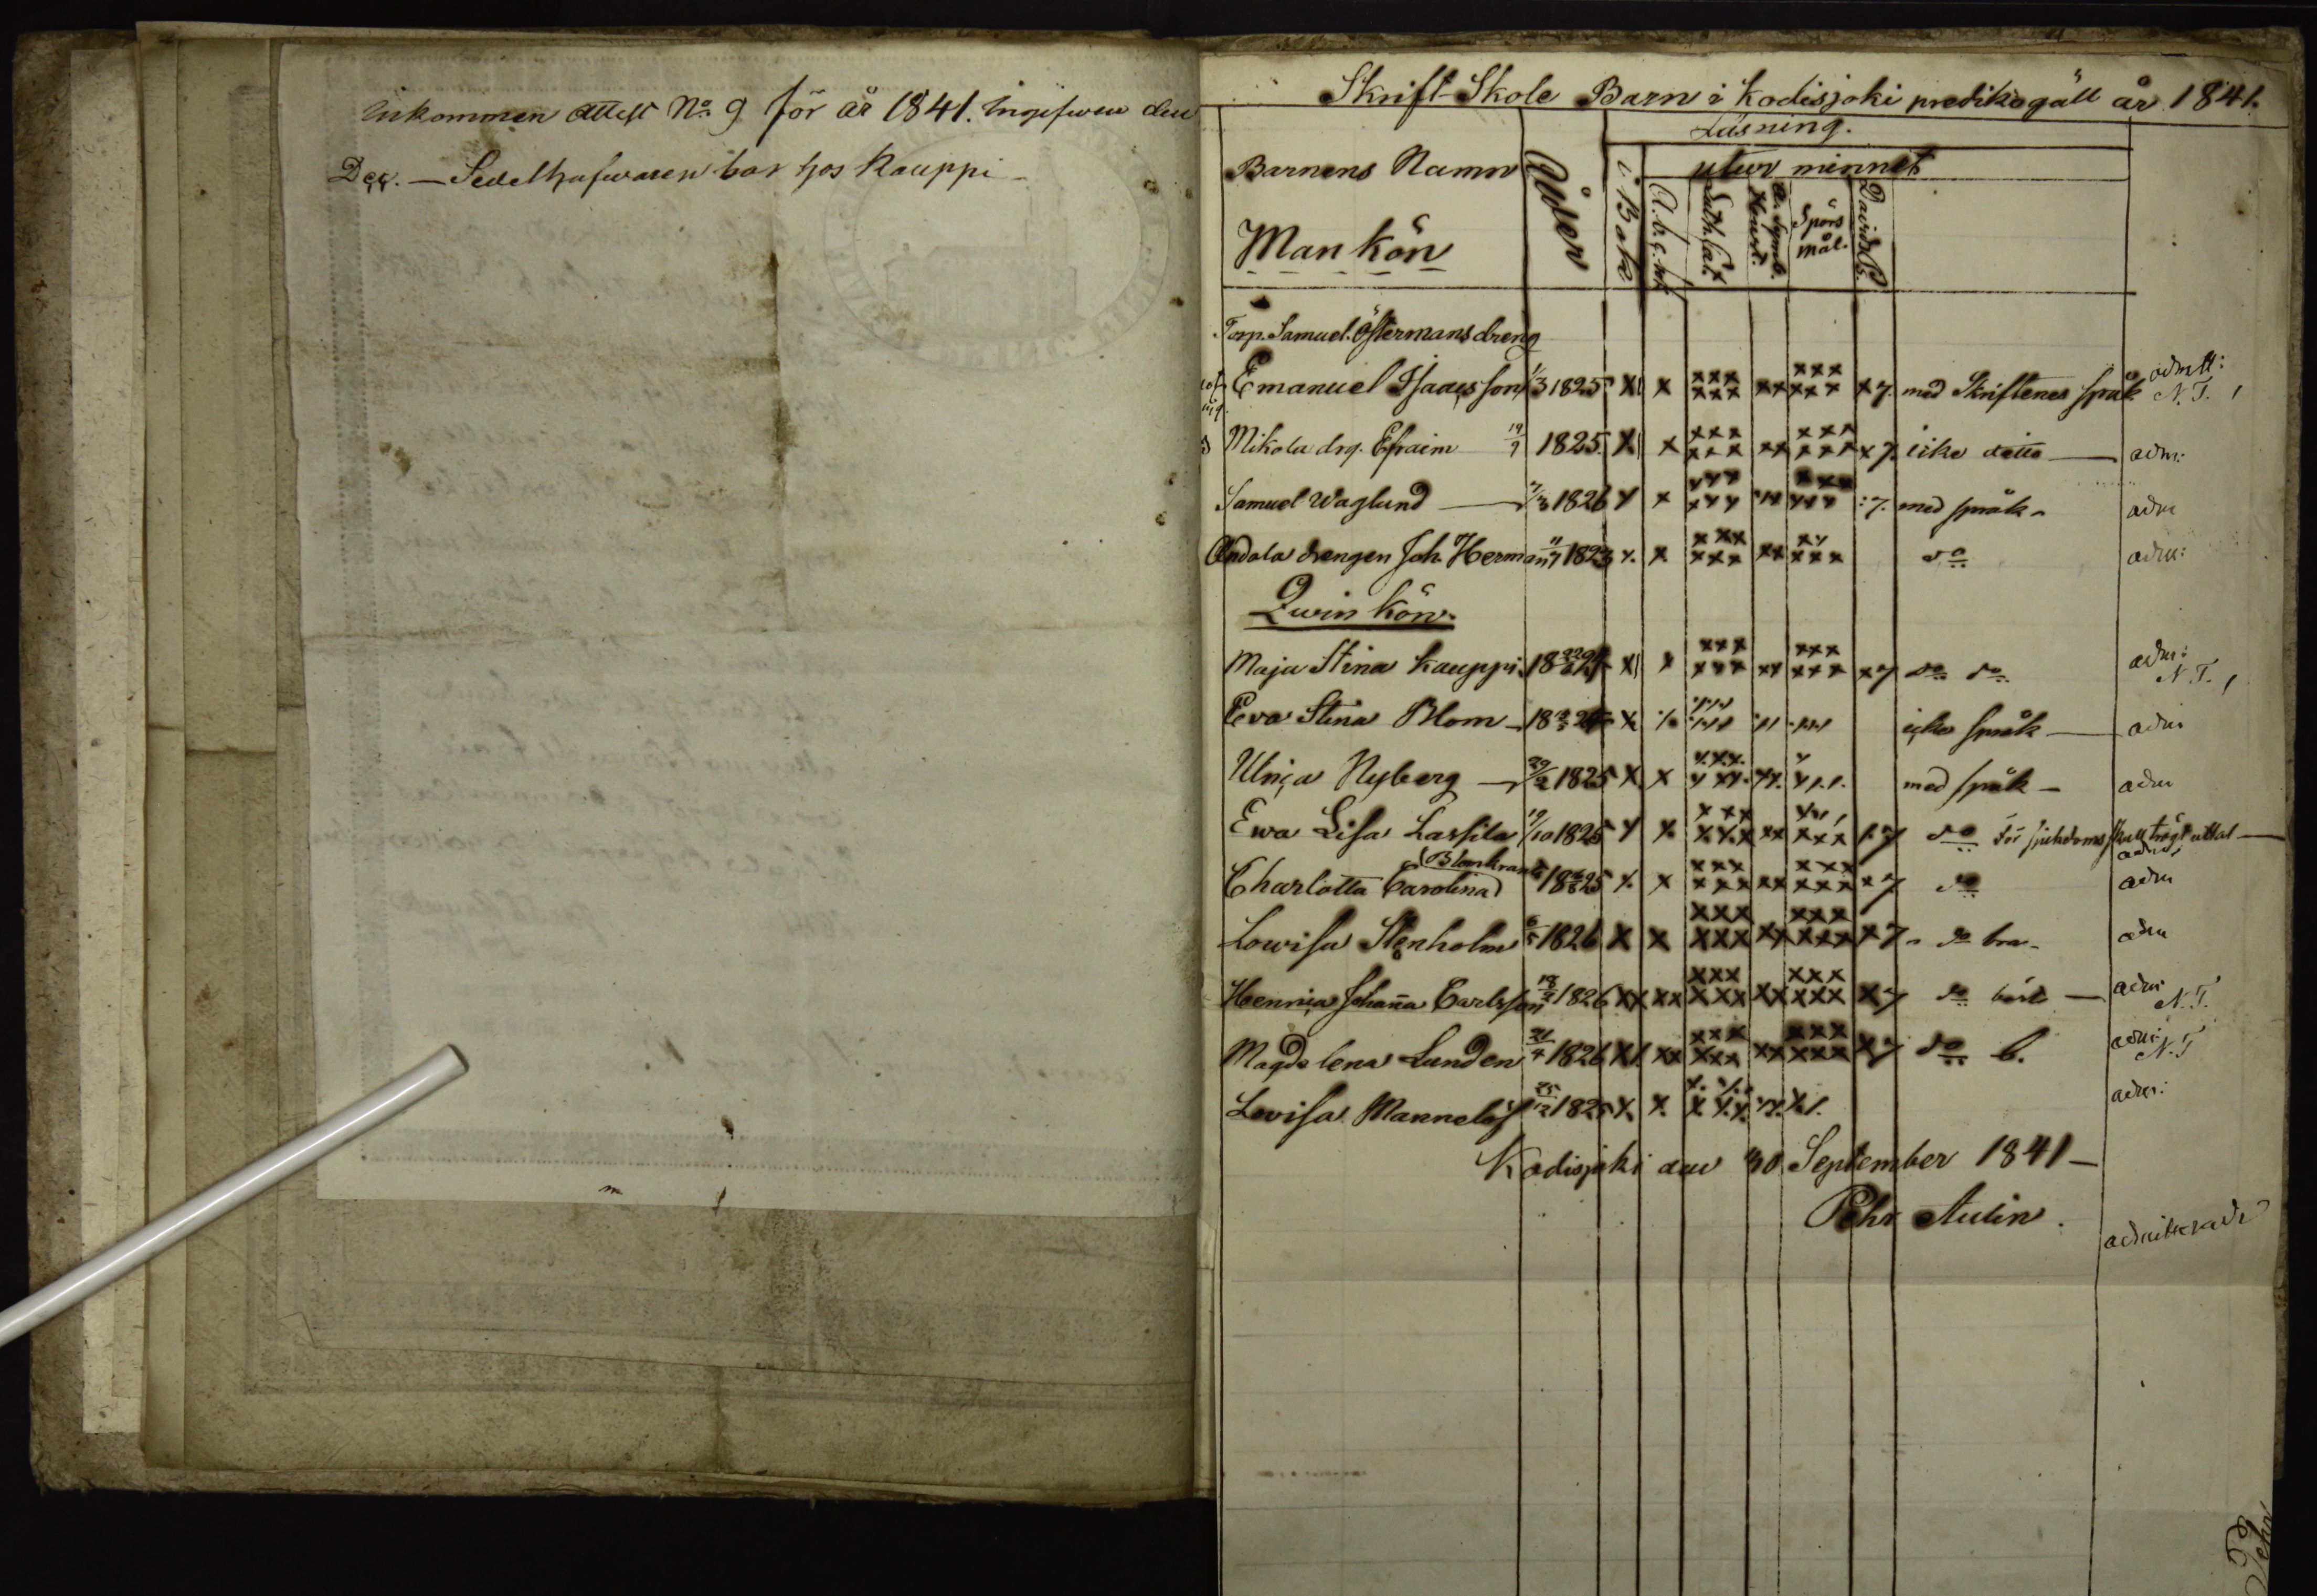 Inkommen attest No 9 för år 1841. Ingifwen den
Dec. — Sedelhafwaren bor hos Kauppi —
Skrift-Skole Barn i Kodisjoki predikogäll år 1841.
Läsning.
Barnens Namn Ålder i Bok utur minnet
A.b.c. Luth. Cat. A. Symb. Spörs mål. Davids Ps.
Mankön
Torp. Samuel Östermans dreng
Emanuel Isaacsson 1/3 1825 X x xxx xxx xx xxx xxx x 7. med Skriftenes språk admtt: N.T.
Mikola drg. Efraim 19/9 1825 X x xxx xxx xx xxx xxx x 7. icke detta — adm:
Samuel Waglund — 1826 x x xxx xxx xxx xxx 7. med språk adm
Andola drengen Joh. Herman 11/7 1823 x. x xxx xxx xx xx xxx do adm:
Qwin kön.
Maja Stina Kauppi X x xxx xxx xx xxx xxx x 7 do do adm: N.T.
Eva Stina Blom — X icke språk — adm
Ulrica Nyberg — 29/2 1825 X x med språk — adm
Ewa Lisa Lassila 19/10 1825 7 do för sjukdoms skull trögt uttal — adm
Blomkrans
Charlotta Carolina 1825 x. x xxx xxx xx xxx xxx x 7 do adm
Lowisa Stenholm 6/5 1826 X x xxx xxx xx xxx xxx x 7 do bra adm
Henrica Johanna Carlsson 18/2 1826 xx xx xxx xxx xx xxx xxx x 7 do bäst — adm N.T.
Magdalena Lunden 21/4 1826 X xx xxx xxx xx xxx xxx x 7 do b. adm: N.T
Lovisa Mannelöf 25/12 1825 adm:
Kodisjoki den 30 September 1841 —
Pehr Aulin.
admitterade
Pehr